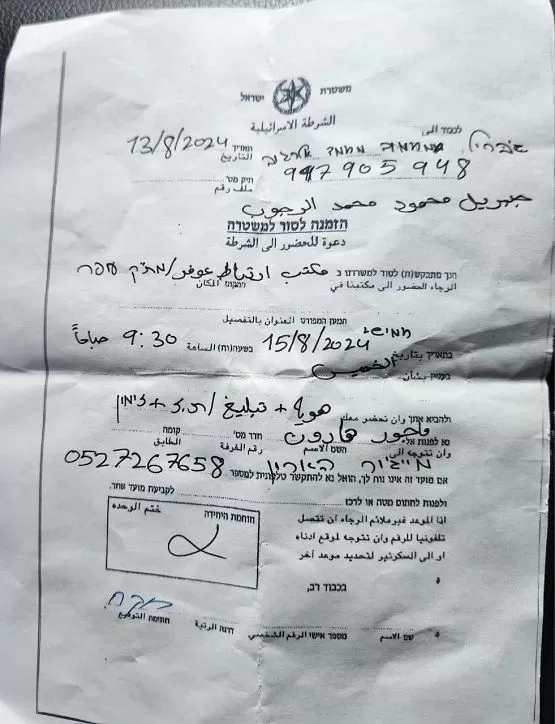 משטרת ישראל
الشرطة الاسرائيلية
לכבוד אל
תאריך 13/8/2024
التاريخ
947905948
תיק מס'
ملف رقم
جبريل محمود محمد الرجوب
הזמנה לסור למשטרה
دعوة للحضور الى الشرطة
הנך מתבקש(ת) לסור למשרדנו ב مكتب ارتباط عوفر/מת"ק עפר
الرجاء الحضور الى مكتبنا في المكان
המען המפורט العنوان بالتفصيل
חמישי
בתאריך بتاريخ 15/8/2024 בשעה(ות) الساعة 9:30 صباحاً
الخميس
בענין بشأن
ולהביא אתך وان تحضر معك هوية + تبليغ/ת.ז + זימון
נא לפנות אל
وان تتوجه الى ماجور هارون
השם الاسم
חדר מס' رقم الغرفة
קומה الطابق
0527267658
אם מועד זה אינו נוח לך, הואל נא להתקשר טלפונית למספר
ולפנות לחתום מטה או לרכז לקביעת מועד אחר.
اذا الموعد غير ملائم الرجاء ان تتصل
تلفونيا للرقم وان تتوجه لموقع ادناه
او الى السكرتير لتحديد موعد آخر
חותמת היחידה ختم الوحدة
בכבוד רב,
שם الاسم
מספר אישי الرقم الشخصي
דרגה الرتبة
חתימה التوقيع